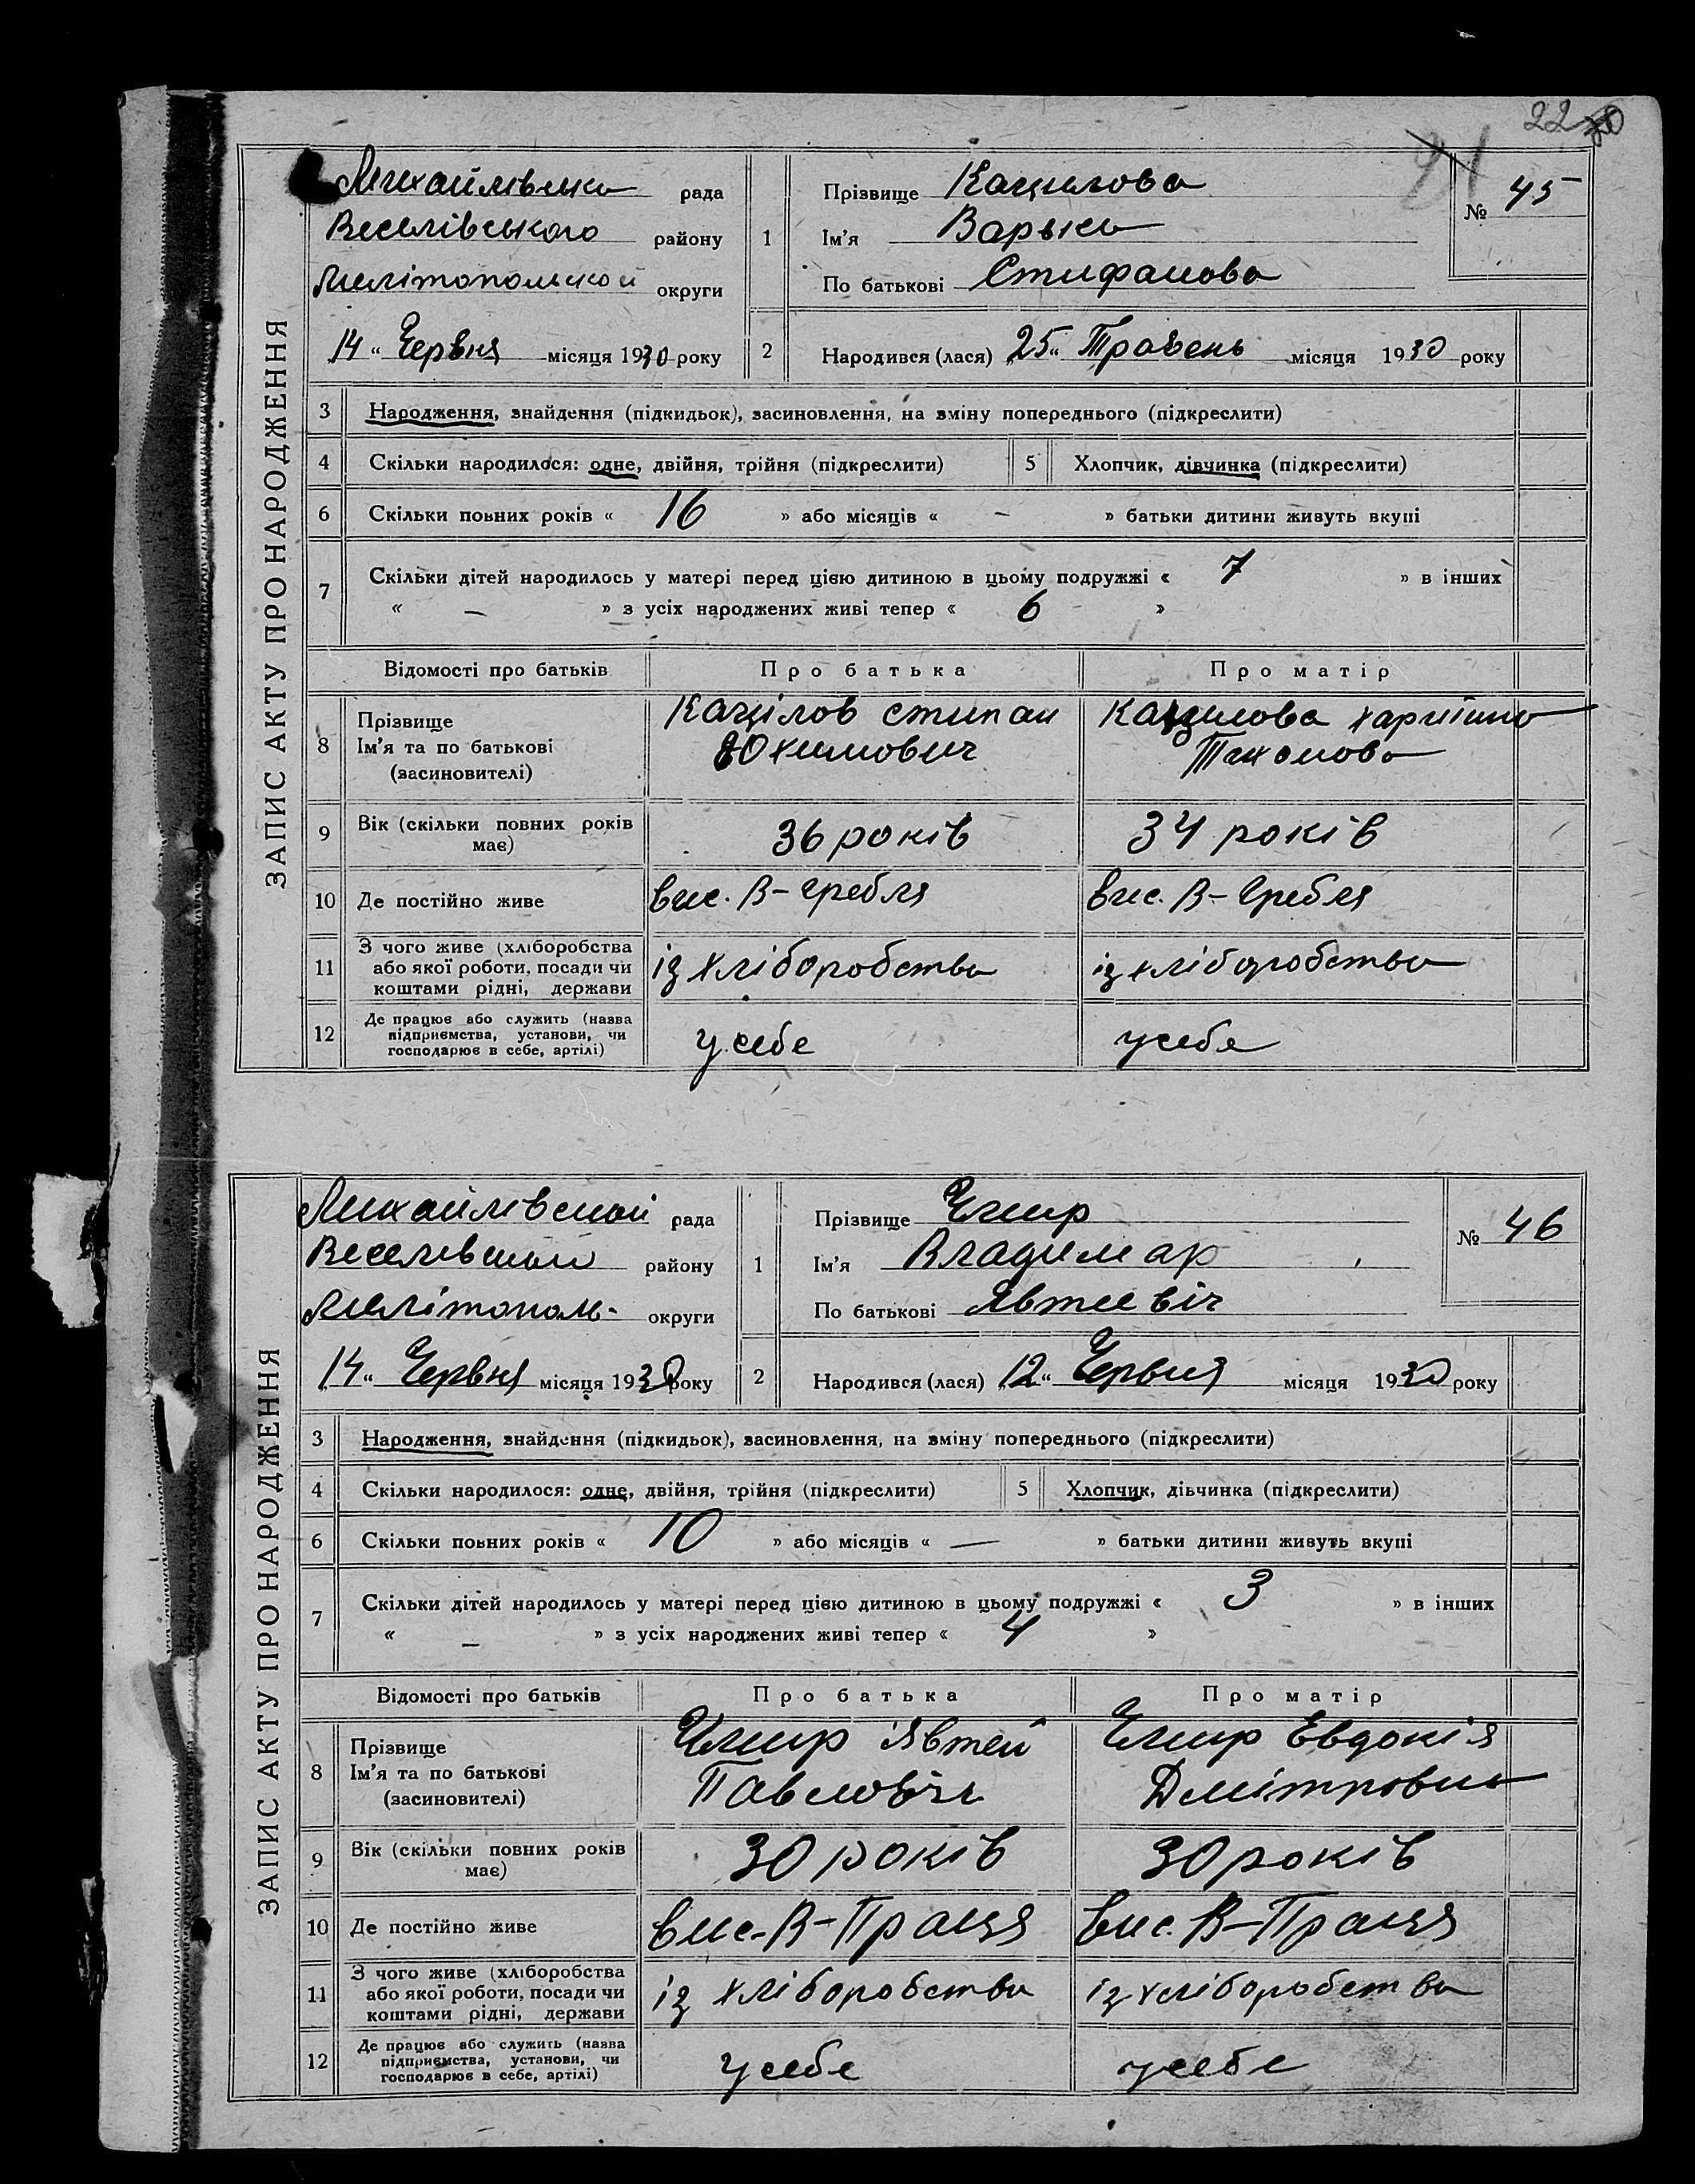 22
ЗАПИС АКТУ ПРО НАРОДЖЕННЯ
Михайлівська рада
Веселівського району
Мелітопольской округи
14 „ Червня місяця 1930 року
1 Прізвище Кацилова
Ім'я Варька
По батькові Стифанова
№ 45
2 Народився (лася) „ 25 „ Травень місяця 1930 року
3 Народження, знайдення (підкидьок), засиновлення, на зміну попереднього (підкреслити)
4 Скільки народилося: одне, двійня, трійня (підкреслити) 5 Хлопчик, дівчинка (підкреслити)
6 Скільки повних років « 16 » або місяців « – » батьки дитини живуть вкупі
7 Скільки дітей народилось у матері перед цією дитиною в цьому подружжі « 7 » в інших
« – » з усіх народжених живі тепер « 6 »
Відомості про батьків Про батька Про матір
8 Прізвище Ім'я та по батькові (засновителі)
Кацілов стипан Юхимович
Кацилова Тихонова
9 Вік (скільки повних років має) 36 років 34 років
10 Де постійно живе вис. В-Гребля вис. В-Гребля
11 З чого живе (хліборобства або якої роботи, посади чи коштами рідні, держави
із хліборобства із хліборобства
12 Де працює або служить (назва підприємства, установи, чи господарює в себе, артілі)
у себе у себя
ЗАПИС АКТУ ПРО НАРОДЖЕННЯ
Михайлівской рада
Веселівской району
Мелітополь- округи
14 „ Червня місяця 1930 року
1 Прізвище Чмир
Ім'я Владимар
По батькові Явтеевіч
№ 46
2 Народився (лася) „ 12 „ Червня місяця 1930 року
3 Народження, знайдення (підкидьок), засиновлення, на зміну попереднього (підкреслити)
4 Скільки народилося: одне, двійня, трійня (підкреслити) 5 Хлопчик, дівчинка (підкреслити)
6 Скільки повних років « 10 » або місяців « — » батьки дитини живуть вкупі
7 Скільки дітей народилось у матері перед цією дитиною в цьому подружжі « 3 » в інших
« – » з усіх народжених живі тепер « 4 »
Відомості про батьків Про батька Про матір
8 Прізвище Ім'я та по батькові (засиновителі)
Чмир Явтей Павловіч
Чмир Евдокія Дмітровна
9 Вік (скільки повних років має) 30 років 30 років
10 Де постійно живе вис. В-Праця вис. В-Праця
11 З чого живе (хліборобства або якої роботи, посади чи коштами рідні, держави
із хліборобства із хліборобства
12 Де працює або служить (назва підприємства, установи, чи господарює в себе, артілі)
у себе у себе